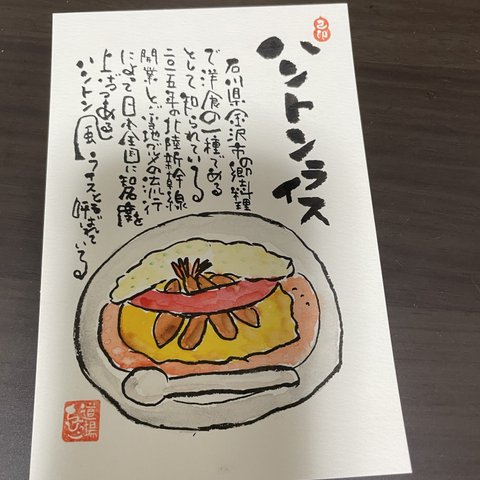 ハントンライス
石川県金沢市の郷土料理
で洋食の一種である
として知られている
二〇一五年の北陸新幹線
開業とご当地グルメの流行
によって日本全国に知名度を
上げつつある
ハントン風ライスとも
呼ばれている
道場